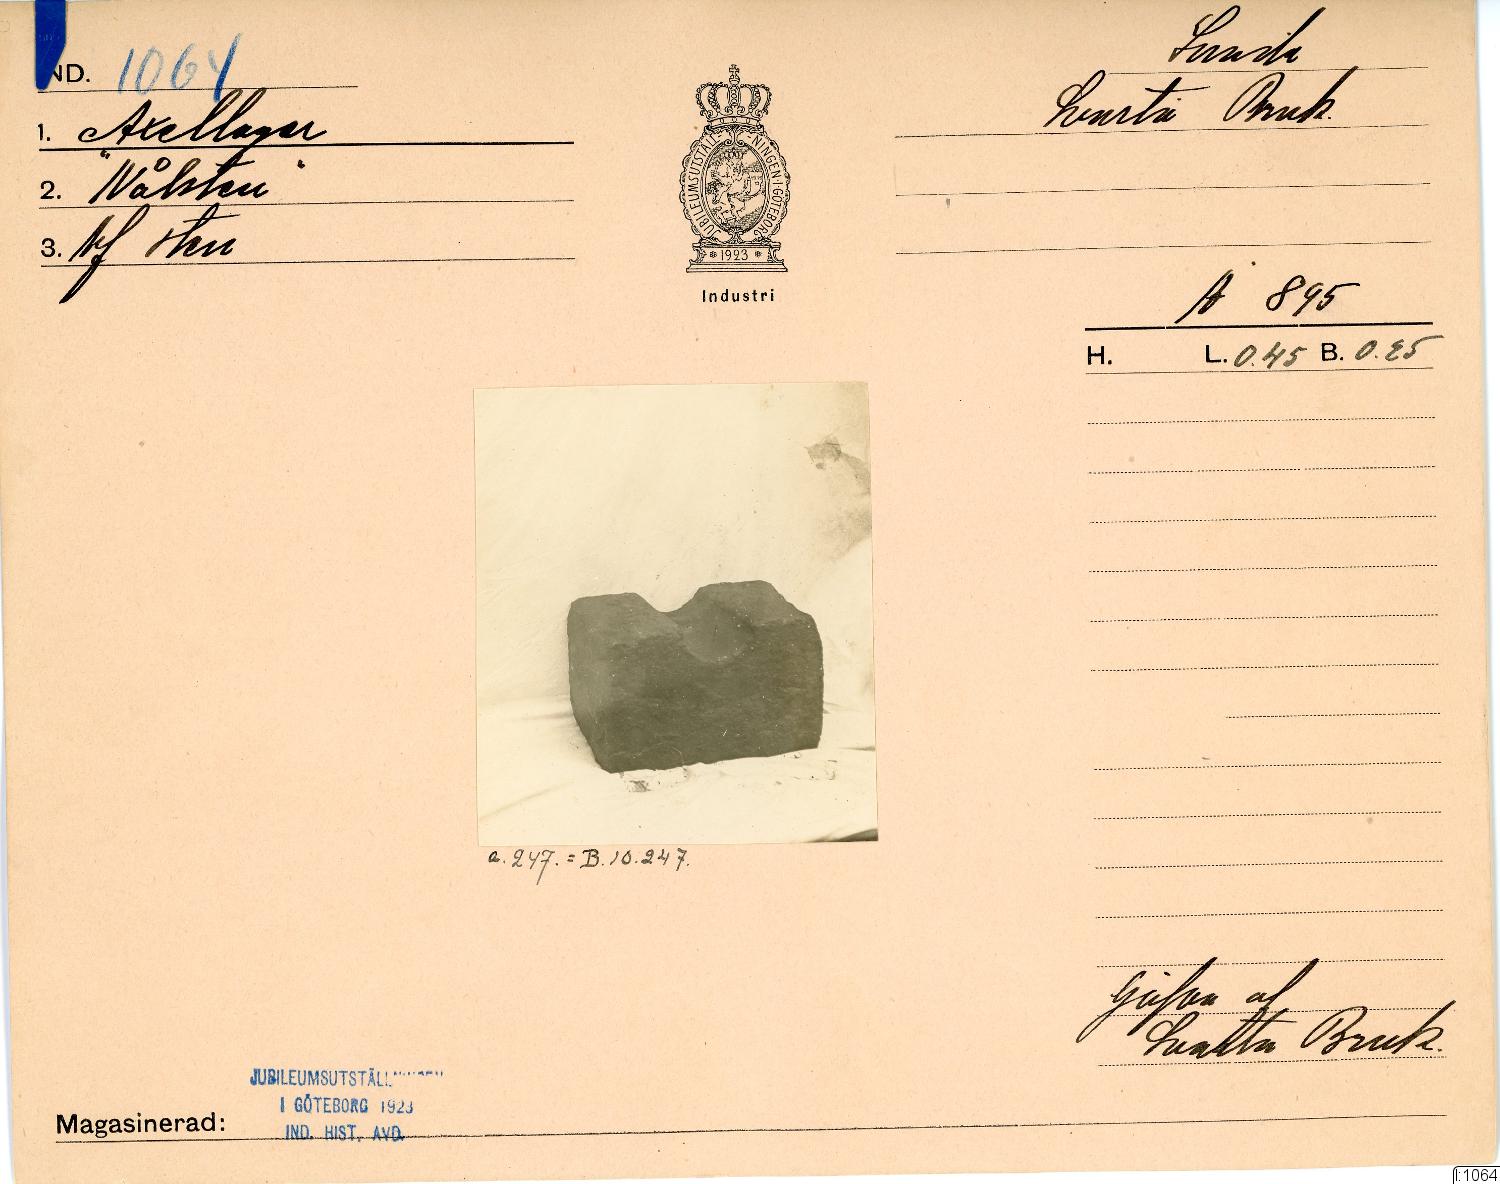 IND. 1064
1. Axellager
2. "Nålsten"
3. Af sten
JUBILEUMSUTSTÄLLNINGEN·I·GÖTEBORG
* 1923 *
Industri
Svartå Bruk.
A 895
H. L. 0.45 B. 0.25
a. 247. = B. 10.247.
af
Svarta Bruk.
JUBILEUMSUTSTÄLLNINGEN
I GÖTEBORG 1923
IND. HIST. AVD.
Magasinerad:
I:1064